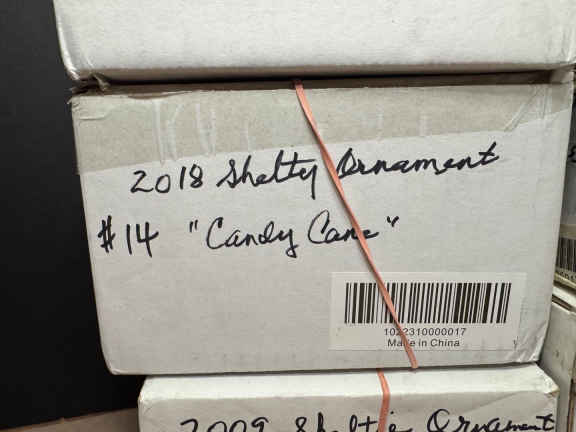 2018 Shelty Ornament
#14 "Candy Cane"
1022310000017
Made in China
2009 Sheltie Ornament